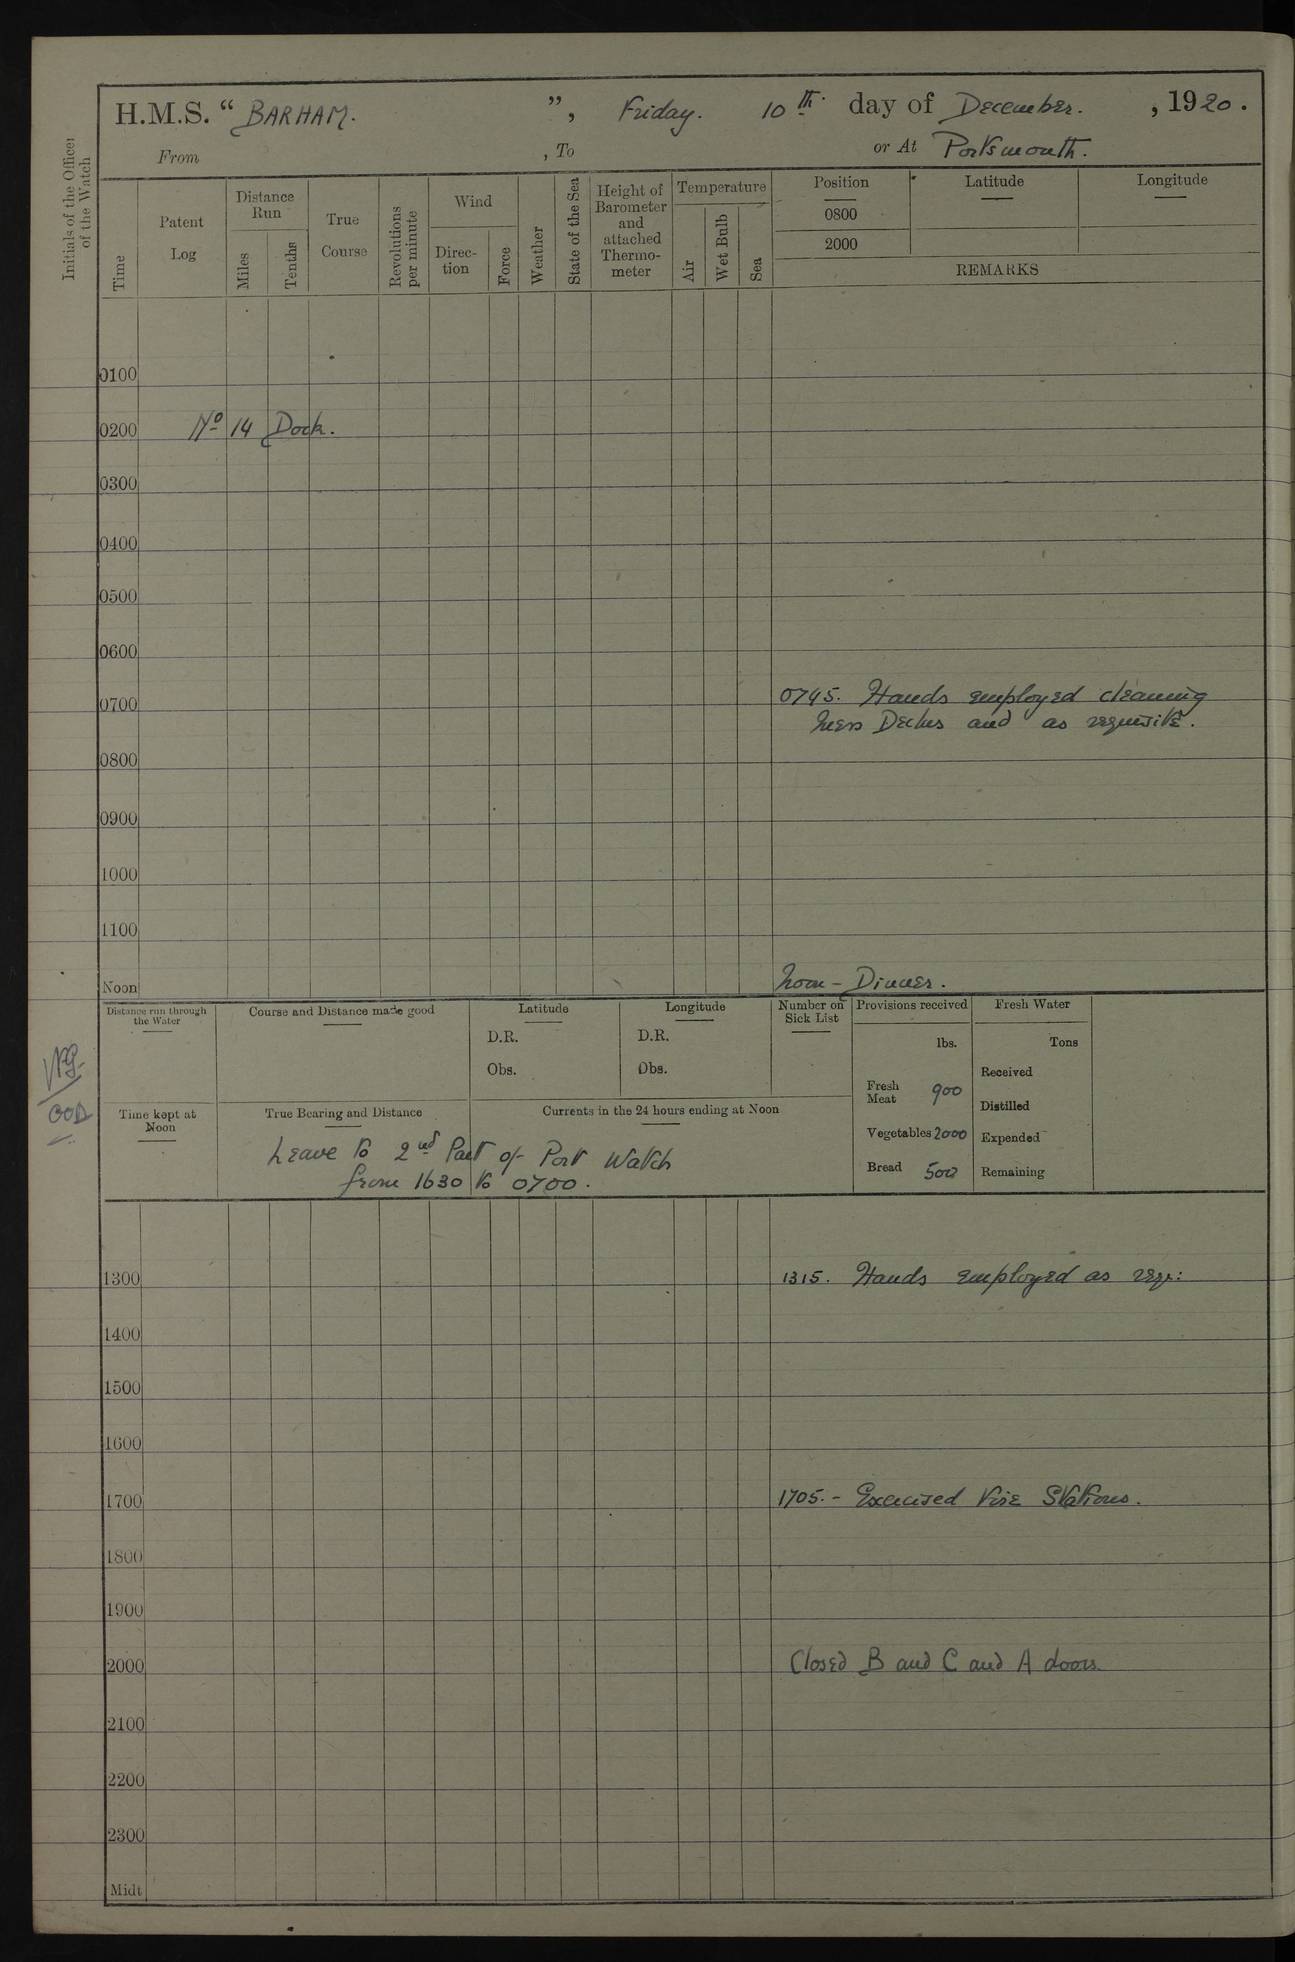 H.M.S. “ BARHAM. ”, Friday. 10th. day of December. , 1920.
From , To or At Portsmouth.
Initials of the Officer
of the Watch
Time
Patent
Log
Distance
Run
Miles
Tenths
True
Course
Revolutions
per minute
Wind
Direc-
tion
Force
Weather
State of the Sea
Height of
Barometer
and
attached
Thermo-
meter
Temperature
Air
Wet Bulb
Sea
Position
Latitude
Longitude
0800
2000
REMARKS
0100
0200 No 14 Dock.
0300
0400
0500
0600
0700 0745. Hands employed cleaning
Mess Decks and as requisite.
0800
0900
1000
1100
Noon Noon - Dinner.
Distance run through
the Water
Course and Distance made good
Latitude
D.R.
Obs.
Longitude
D.R.
Obs.
Number on
Sick List
Provisions received
lbs.
Fresh
Meat 900
Vegetables 2000
Bread 500
Fresh Water
Tons
Received
Distilled
Expended
Remaining
OOD
Time kept at
Noon
True Bearing and Distance
Currents in the 24 hours ending at Noon
Leave to 2nd Part of Port Watch
from 1630 to 0700.
1300 1315. Hands employed as req:
1400
1500
1600
1700 1705. - Exercised Fire Stations.
1800
1900
2000 Closed B and C and A doors.
2100
2200
2300
Midt